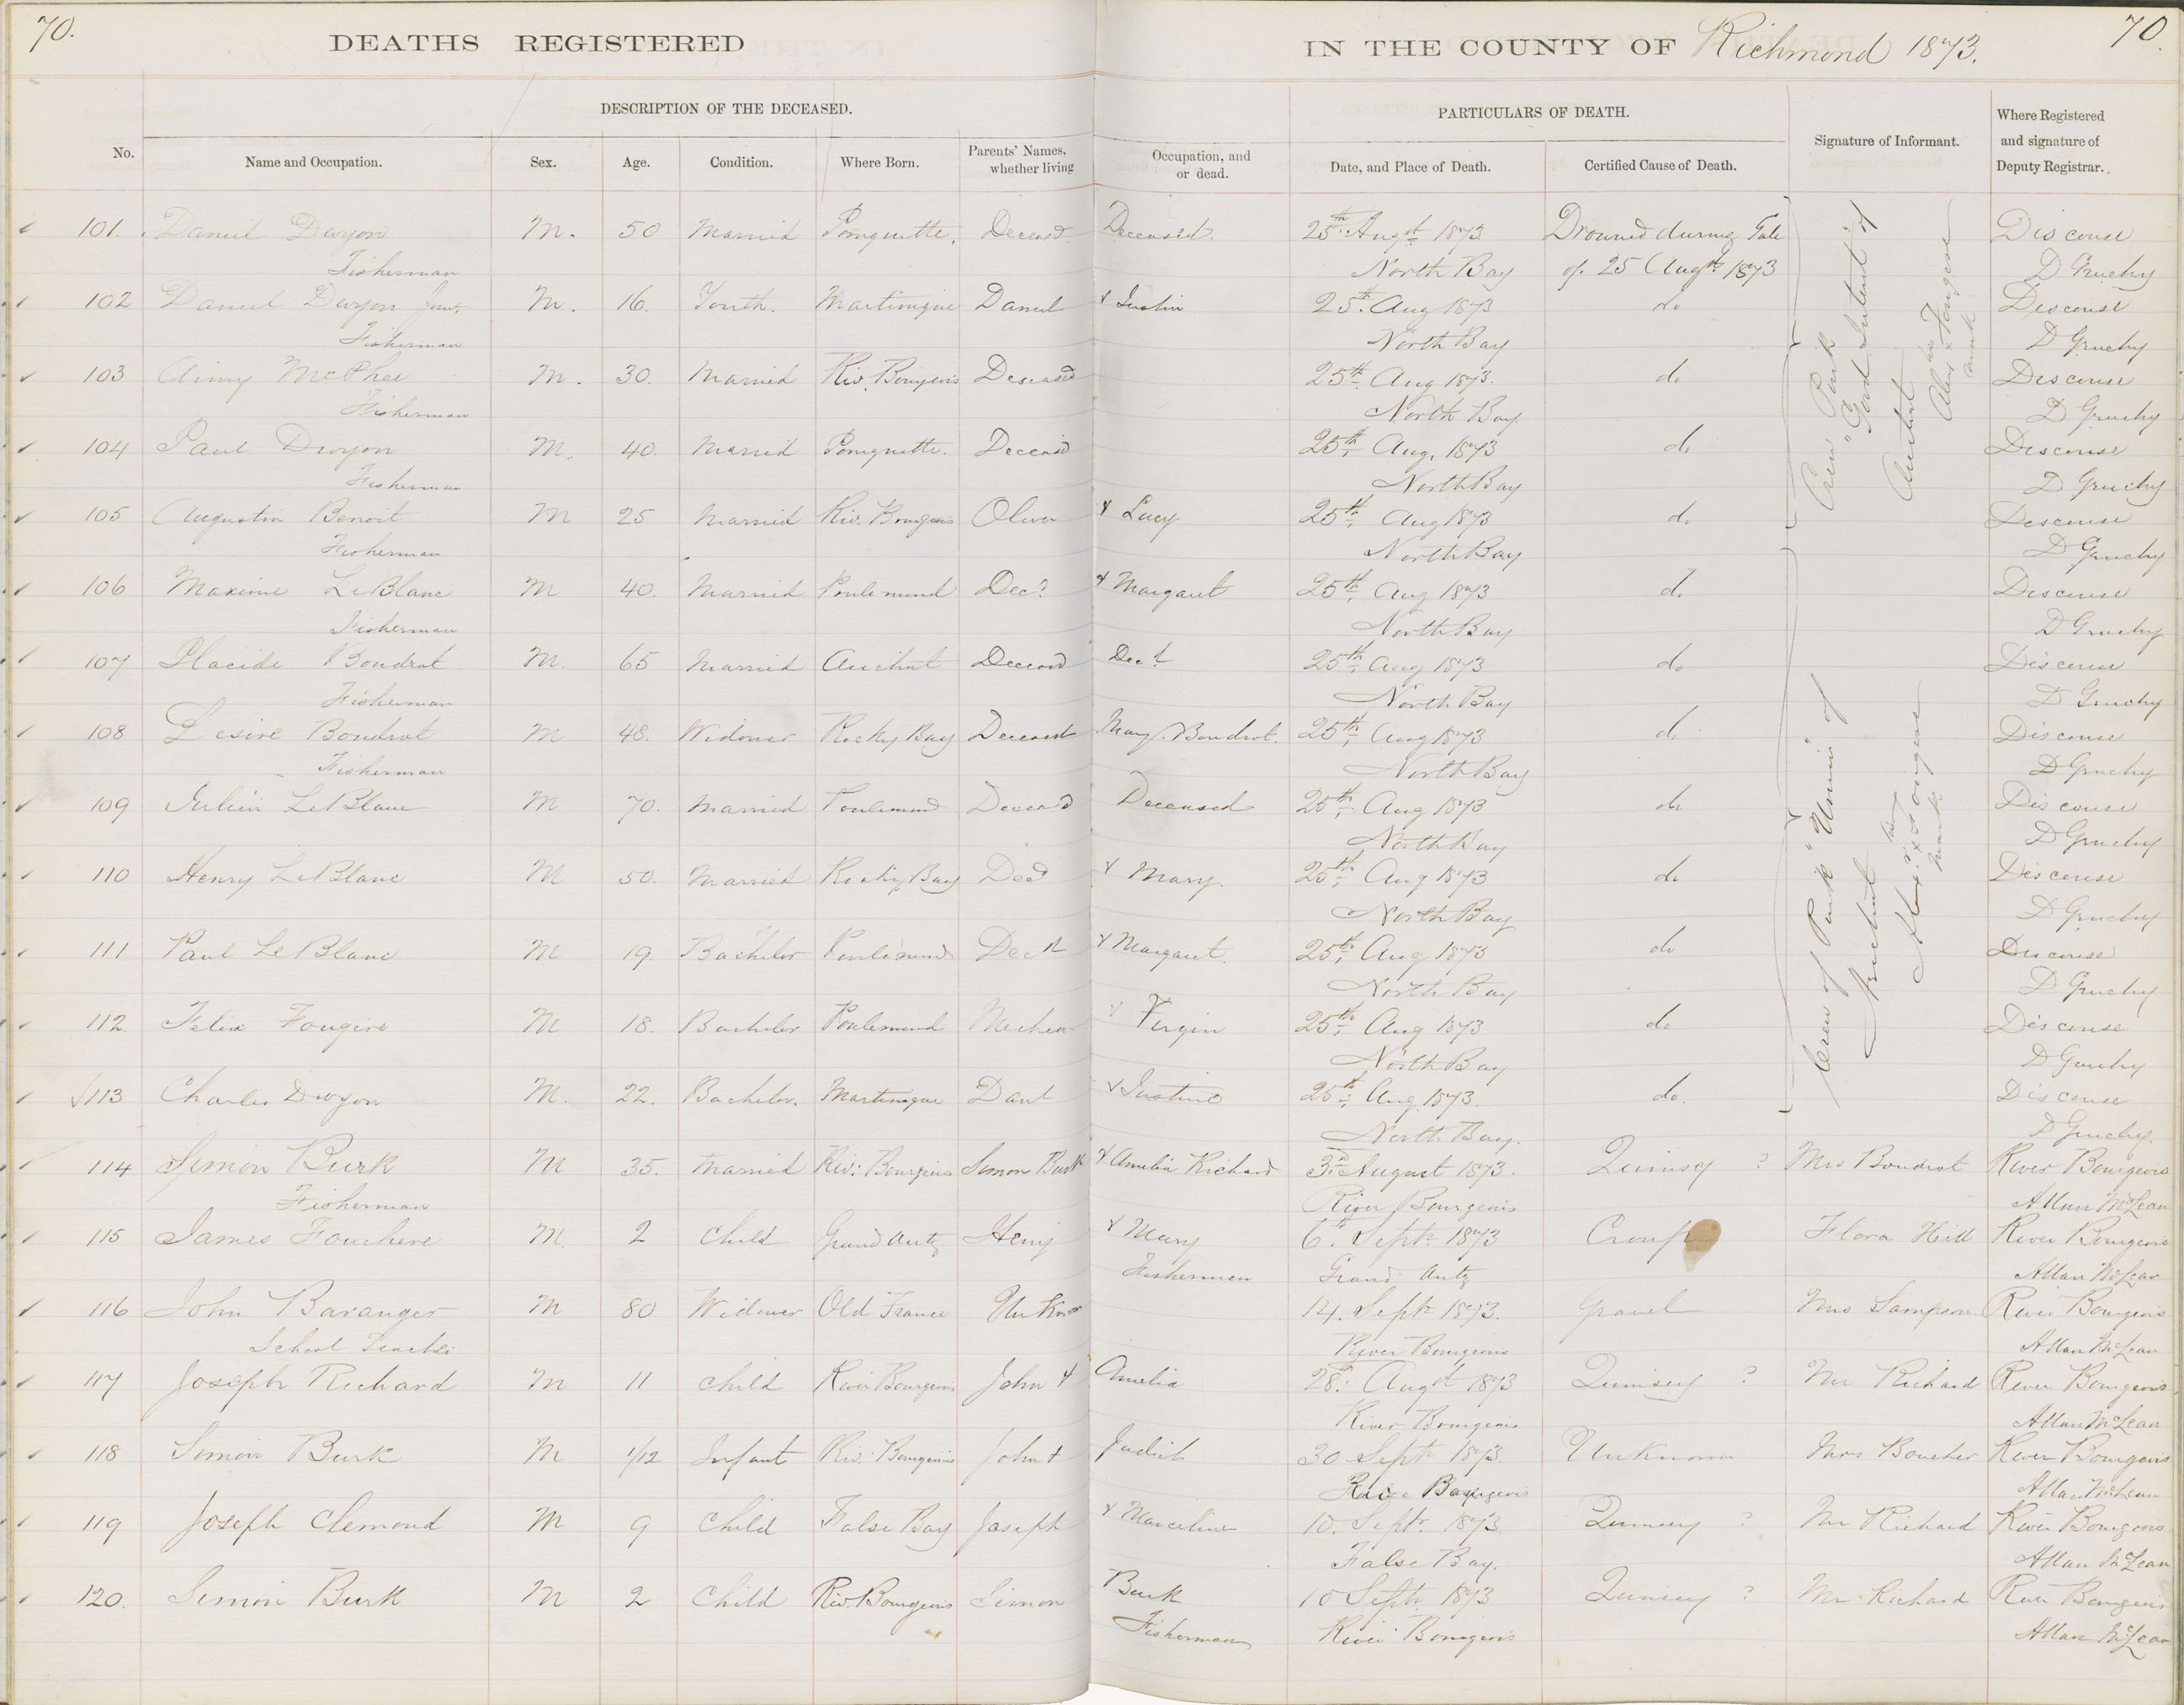 70.
DEATHS REGISTERED
IN THE COUNTY OF Richmond 1873.
70.
DESCRIPTION OF THE DECEASED.
PARTICULARS OF DEATH.
No.
Name and Occupation.
Sex.
Age.
Condition.
Where Born.
Parents' Names, whether living
Occupation, and or dead.
Date, and Place of Death.
Certified Cause of Death.
Signature of Informant.
Where Registered and signature of Deputy Registrar.
101. Daniel Dwyon M. 50 Married Pomquette. Deceasd Deceased. 25th Augst 1873 Drowned during Gale Discouse
Fisherman North Bay of 25 Augst 1873 D Gruchy
102 Daniel Dwyon Junr. M. 16. Youth. Martinique Daniel & Justin 25th Aug 1873 do Discouse
Fisherman North Bay D Gruchy
103 Aimy McPhee M. 30. Married Riv. Bourgeois Deceased 25th Aug 1873. do Discouse
Fisherman North Bay. D Gruchy
104 Paul Dwyon M. 40. Married Pomquette. Deceasd 25th Aug. 1873 do Discouse
Fisherman North Bay D Gruchy
105 Augustin Benoit M 25 Married Riv. Bourgeois Oliver & Lucy 25th Aug 1873 do Discouse
Fisherman North Bay D Gruchy
106 Maxime LeBlanc M 40. Married Poulemond Decd & Margaret 25th Aug 1873 do Discouse
Fisherman North Bay D Gruchy
107 Placide Boudrot M. 65 Married Arichat Deceasd Decd 25th Aug 1873 do Discouse
Fisherman North Bay D Gruchy
108 Desire Boudrot M 48. Widower Rocky Bay Deceased Mary Boudrot. 25th Aug 1873 do Discouse
Fisherman North Bay D Gruchy
109 Julien LeBlanc M 70. Married Poulemond Deceasd Deceased 25th Aug 1873 do Discouse
North Bay D Gruchy
110 Henry LeBlanc M 50. Married Rocky Bay Decd & Mary. 25th Aug 1873 do Discouse
North Bay D Gruchy
111 Paul LeBlanc M 19. Bachelor Poulemond Decd & Margaret. 25th Aug 1873 do Discouse
North Bay D Gruchy
112 Felix Fougere M 18. Bachelor Poulemond & Virgin 25th Aug 1873 do Discouse
North Bay D Gruchy
113 Charles Dwyon M. 22. Bachelor. Martinique Danl & Justine 25th Aug 1873. do. Discouse
North Bay. D Gruchy.
Crew Pink "Good Intent" of Arichat
Alex x Fougere
his mark
Crew of Pink "Union" of Arichat
Alexr x Fougere
his mark
114 Simon Burk M 35. Married Riv: Bourgeois Simon Burk & Amelia Richard 3rd August 1873. Quinsey ? Mrs Boudrot River Bourgeois
Fisherman River Bourgeois Allan McLean
115 James Fouchere M. 2 Child Grand Antz Henry & Mary 6th Septr 1873 Croup Flora Hill River Bourgeois
Fisherman Grand Antz Allan McLean
116 John Baranger M 80 Widower Old France Un Know 14. Septr 1873. Gravel Mrs Sampson River Bourgeois
School Teacher River Bourgeois Allan McLean
117 Joseph Richard M 11 Child River Bourgeois John & Amelia 28th Augst 1873 Quinsey ? Mr Richard River Bourgeois
River Bourgeois Allan McLean
118 Simon Burk M 1/12 Infant Riv. Bourgeois John & Judith 30 Septr 1873. Unknown Mrs Boucher River Bourgeois
River Bourgeois Allan McLean
119 Joseph Clemond M 9 Child False Bay Joseph & Marceline 10. Septr. 1873 Quinsey ? Mr Richard River Bourgeois
False Bay. Allan McLean
120. Simon Burk M 2 Child Riv. Bourgeois Simon Burk 10 Septr 1873 Quinsey ? Mr Richard River Bourgeois
Fisherman River Bourgeois Allan McLean